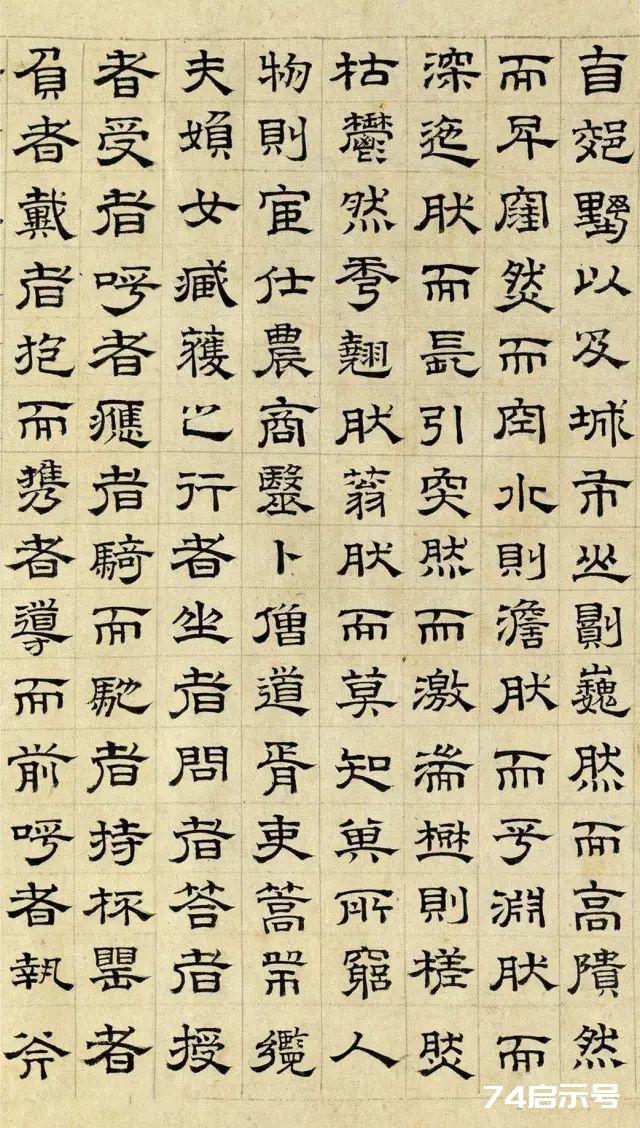 自郊墅以及城市山則巍然而高隤然
而卑窪然而空水則澹然而平淵然而
深迤然而長引突然而激湍樹則槎然
枯鬱然秀翹然蓊然而莫知其所窮人
物則宦仕農商醫卜僧道胥吏篙師纜
夫婦女臧獲之行者坐者問者答者授
者受者呼者應者騎而馳者持杯罌者
負者戴者抱而攜者導而前呼者執斧
74启示号